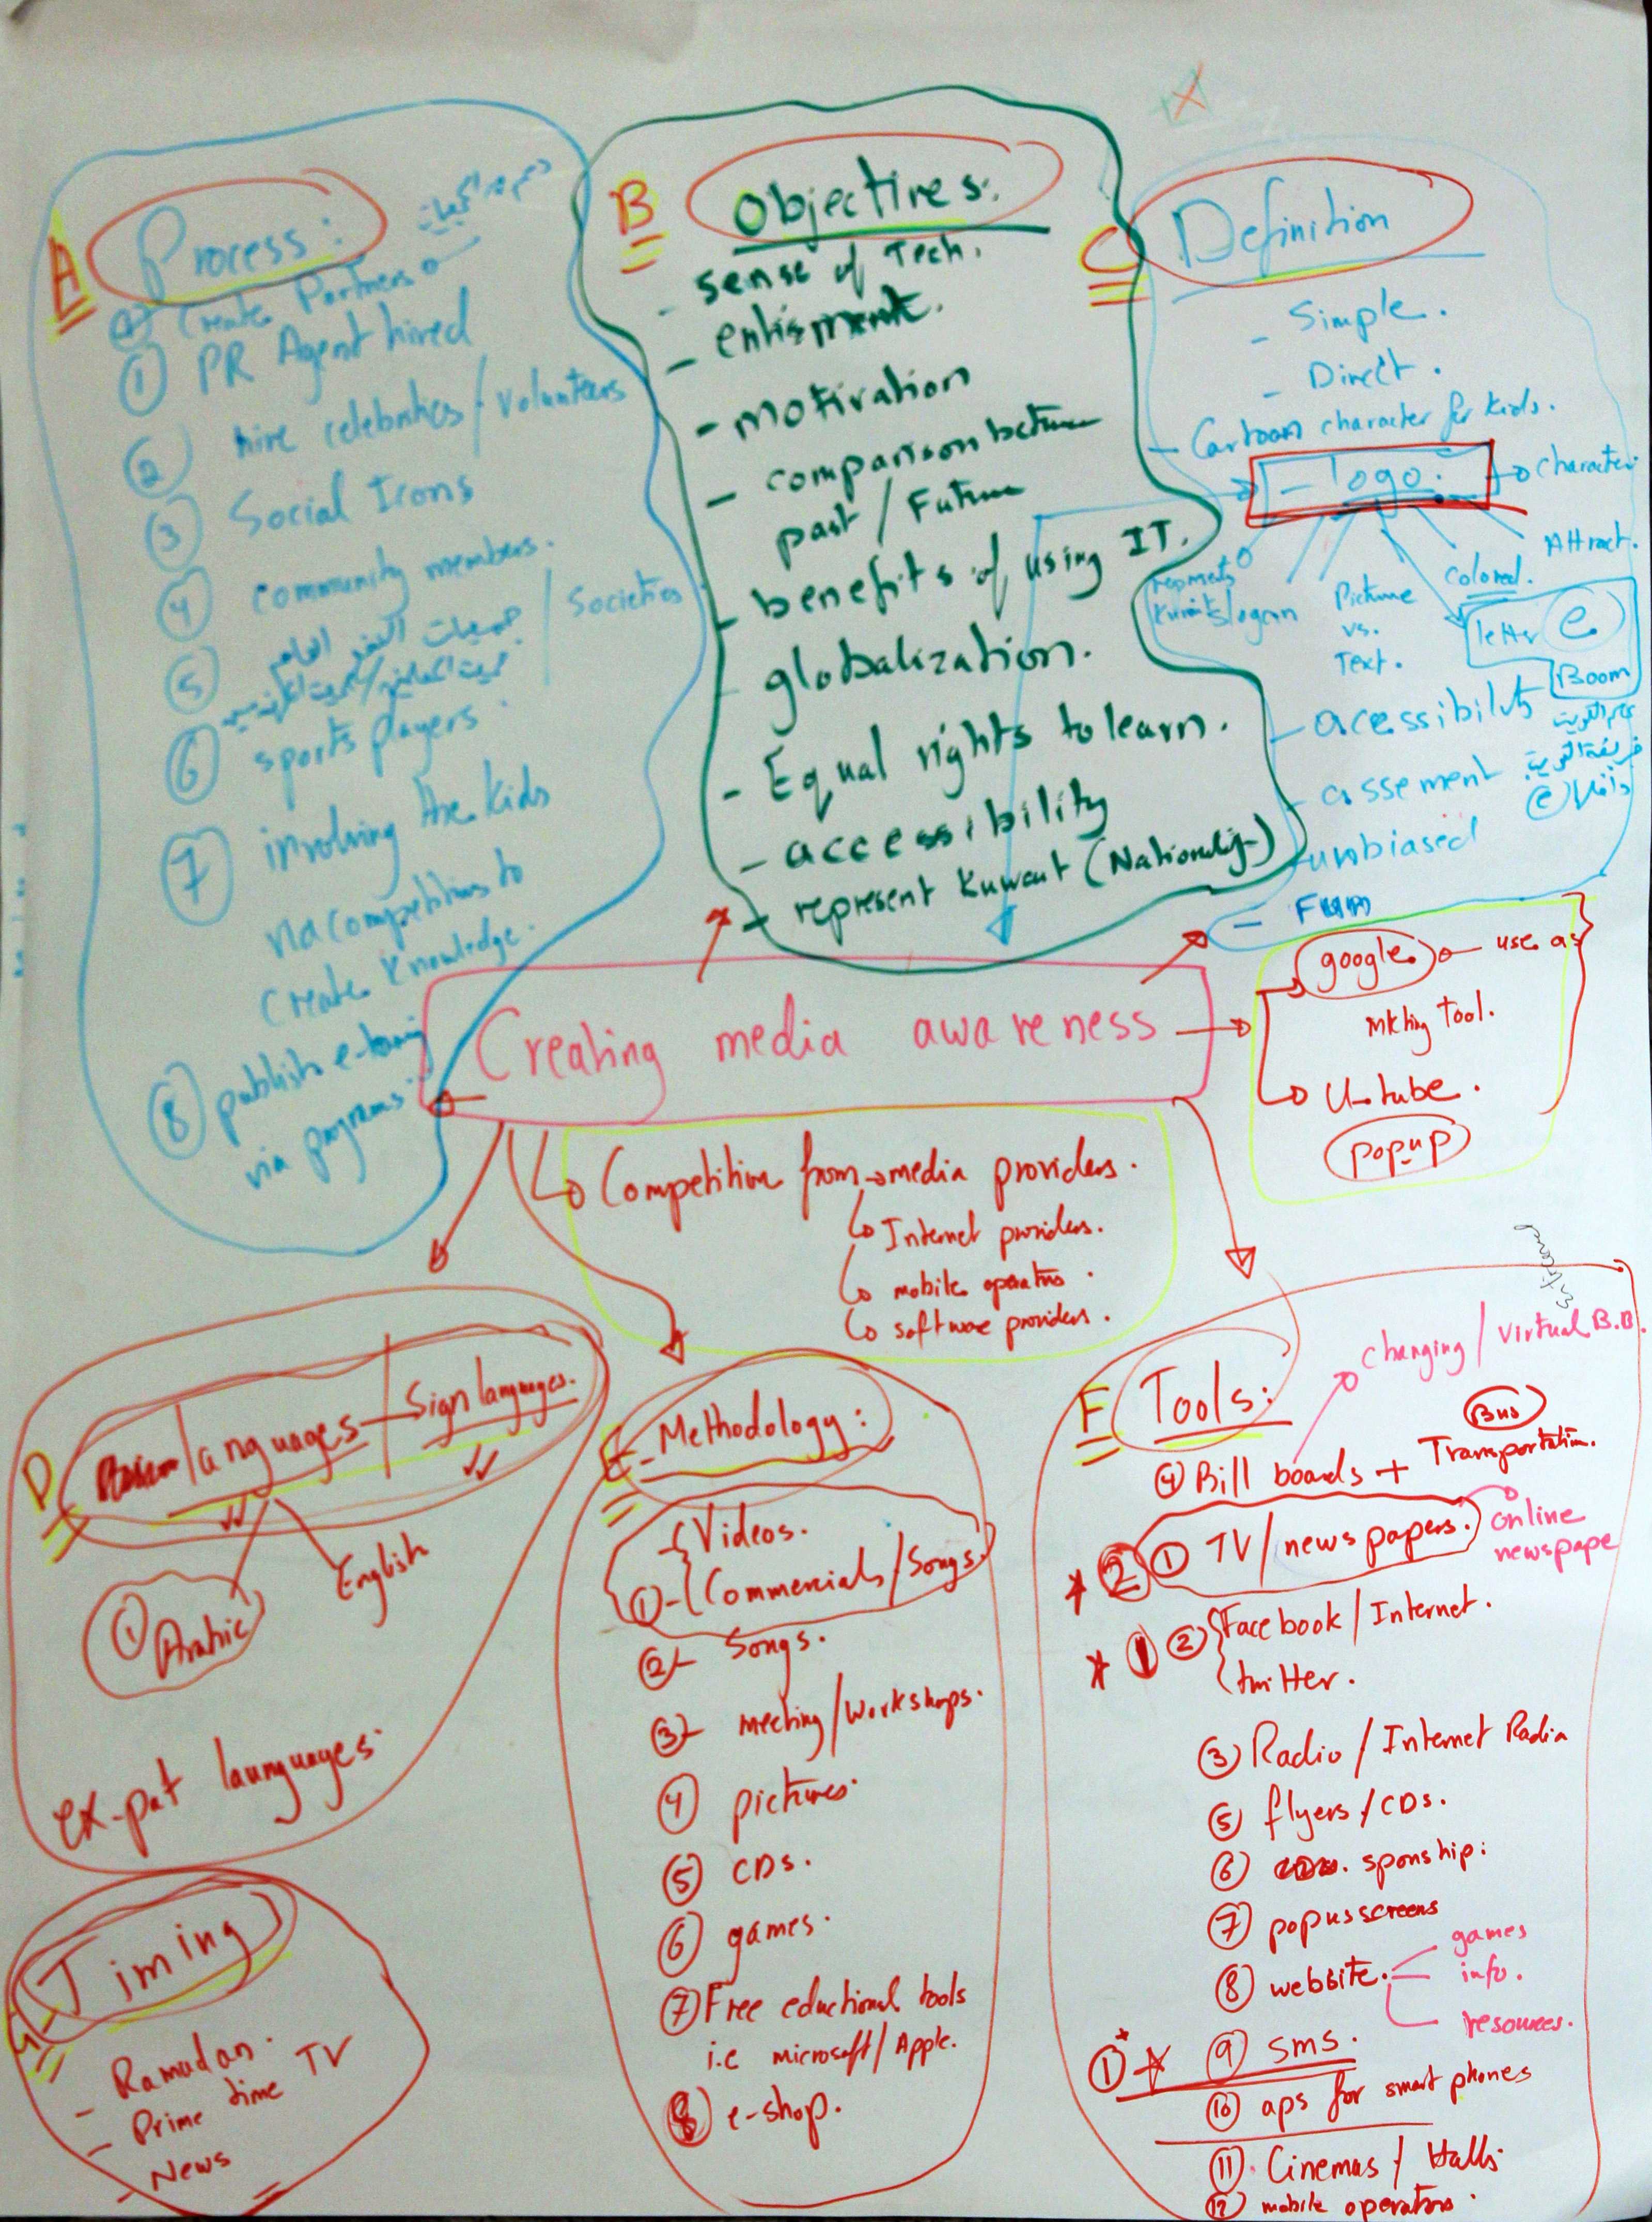 A
Process:
Create Partners
① PR Agent hired
② hire celebrities / volunteers
③ Social Icons
④ community members.
⑤ جمعيات النفع العام / Societies
⑥ sports players.
⑦ involving the kids
via competitions to
Create knowledge.
⑧ publish e-
via programs
B
Objectives:
- sense of Tech.
-
- motivation
- comparison between
past / Future
- benefits of using IT.
- globalization.
- Equal rights to learn.
- accessibility
- represent Kuwait (Nationality)
C
Definition
- Simple.
- Direct.
- Cartoon character for kids.
- logo.
character
Attract.
colored.
Picture
vs.
Text.
slogan
letter e
Boom
- acessibility
- assement
- unbiased
- Fun
Creating media awareness
google
use as
mkting Tool.
U-tube.
popup
Competition from media providers.
Internet providers.
mobile operators.
software providers.
D
languages / Sign languages.
① Arabic
English
ex-pat launguages.
E - Methodology:
- Videos.
①- Commercials / Songs.
②- Songs.
③- meeting / workshops.
④ pictures.
⑤ CDs.
⑥ games.
⑦ Free eductional tools
i.e microsoft / Apple.
⑧ e-shop.
F
Tools:
changing / virtual B.B.
Bus
④ Bill boards + Transportation.
② ① TV / newspapers.
online
newspape
① ② Facebook / Internet.
twitter.
③ Radio / Internet Radia
⑤ flyers / CDs.
⑥ sponship:
⑦ popus screens
⑧ webbsite.
games
info.
resources.
① ⑨ sms.
⑩ aps for smart phones
⑪ Cinemas / Halls
⑫ mobile operators.
Timing
- Ramadan.
- Prime time TV
- News